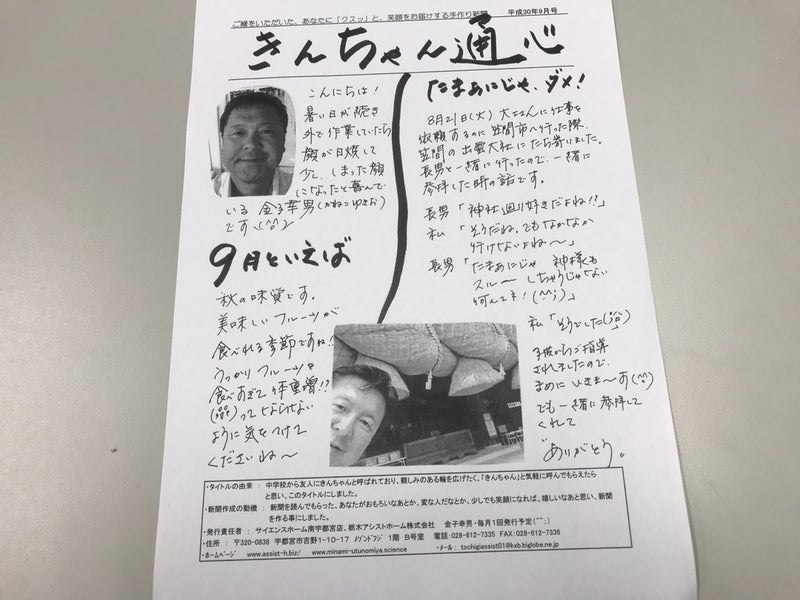 ご縁をいただいた、あなたに「クスッ」と、笑顔をお届けする手作り新聞
平成30年9月号
きんちゃん通心
こんにちは!
暑い日が続き
外で作業していたら
顔が日焼して
少し、しまった顔
になったと喜んで
いる 金子幸男(かねこゆきお)
です(^^)
9月といえば
秋の味覚です。
美味しいフルーツが
食べれる季節ですね!
うっかりフルーツを
食べすぎて 体重増!?
ってならない
ように気をつけて
くださいね〜
たまあにじゃ、ダメ!
8月21日(火) 大工さんに仕事を
依頼するのに笠間市へ行った際、
笠間の出雲大社にたち寄りました。
長男と一緒に行ったので、一緒に
参拝した時の話です。
長男「神社廻り好きだよね!?」
私 「そうだね。でもなかなか
行けないよね〜」
長男「たまあにじゃ 神様も
スル〜しちゃうじゃない
何んてネ!(^^;)」
私「そうでした
子供からご指導
されましたので、
まめにいきま〜す(^^)
でも一緒に参拝して
くれて
"ありがとう"
・タイトルの由来 : 中学校から友人にきんちゃんと呼ばれており、親しみのある輪を広げたく、「きんちゃん」と気軽に呼んでもらえたら
と思い、このタイトルにしました。
・新聞作成の動機 : 新聞を読んでもらった、あなたがおもろいなあとか、変な人だなとか、少しでも笑顔になれば、嬉しいなあと思い、新聞
を作る事にしました。
・発行責任者 : サイエンスホーム南宇都宮店、栃木アシストホーム株式会社 金子幸男・毎月1回発行予定(^^;)
・住所 : 〒320-0838 宇都宮市吉野1-10-17 メゾンドフジ 1階 B号室 電話:028-612-7335 FAX:028-612-7336
・ホームページ www.assist-h.biz/ www.minami-utunomiya.science ・メール: tochigiassist01@kxb.biglobe.ne.jp